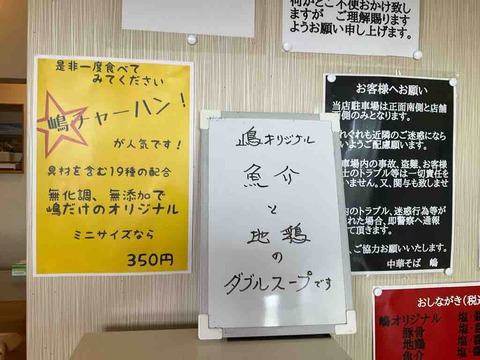 何かとご不便おかけ致し
ますが ご理解賜ります
ようお願い申し上げます。
是非一度食べて
みてください
嶋チャーハン!
が人気です!
具材を含む19種の配合
無化調、無添加で
嶋だけのオリジナル
ミニサイズなら
350円
嶋オリジナル
魚介
と
地鶏
の
ダブルスープです
お客様へお願い
当店駐車場は正面南側と店舗
南側のみとなります。
れぐれも近隣のご迷惑になら
いようご配慮願います。
車場内の事故、盗難、お客様
士のトラブル等は一切責任を
いません。又、関与も致しませ
内のトラブル、迷惑行為等が
れた場合、即警察へ通報
て頂きます。
、ご協力お願いいたします。
中華そば 嶋
おしながき(税込
嶋オリジナル 塩・
豚骨 塩・
地鶏 塩・
魚介